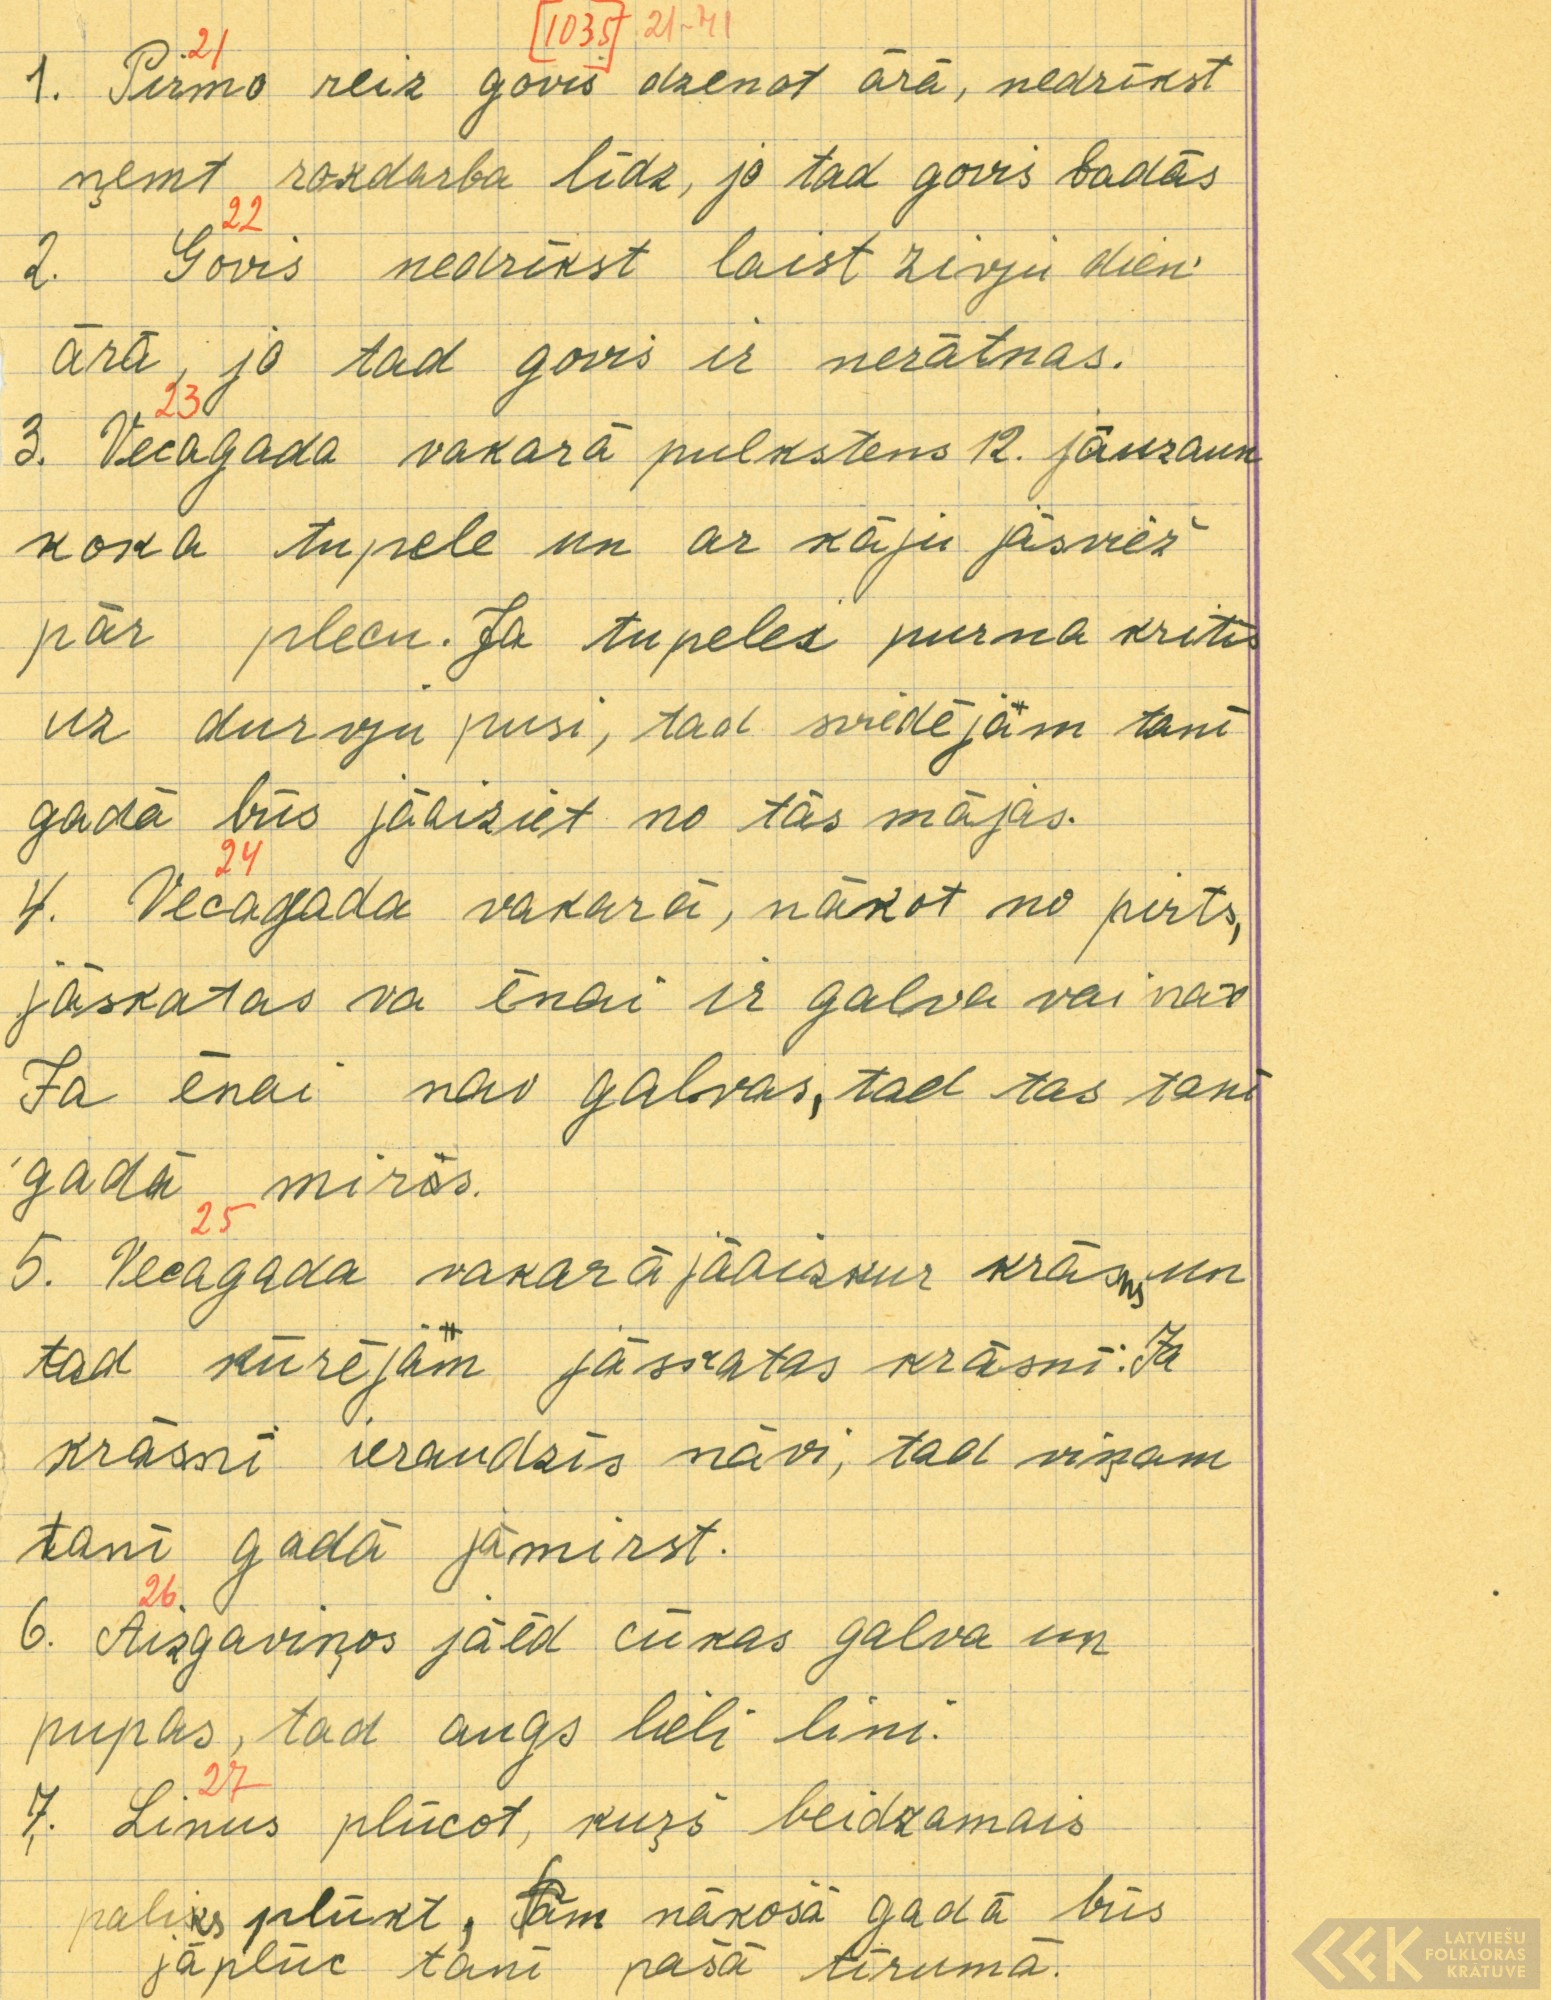 [1035] 21-41
21
1. Pirmo reiz govis dzenot ārā, nedrīkst
ņemt rokdarba līdz, jo tad govis badās
22
2. Govis nedrīkst laist zivju dien
ārā, jo tad govis ir nerātnas.
23
3. Vecagada vakarā pulkstens 12. jāuzaun
koka tupele un ar kāju jāsviež
pār plecu. Ja tupeles purna kritīs
uz durvju pusi, tad sviedējam tanī
gadā būs jāaiziet no tās mājas.
24
4. Vecagada vakarā, nākot no pirts,
jāskatas va ēnai ir galva vai nav
Ja ēnai nav galvas, tad tas tanī
gadā mirs.
25
5. Vecagada vakarā jāaizkur krāsns un
tad kūrējam jāskatas krāsnī. Ja
krāsnī ieraudzīs nāvi, tad viņam
tanī gadā jāmirst.
26
6. Aizgaviņos jāēd cūkas galva un
pupas, tad augs lieli lini.
27
7. Linus plūcot, kuŗš beidzamais
paliks plūkt, tam nākošā gadā būs
jāplūc tanī pašā tīrumā.
LATVIEŠU
FOLKLORAS
KRĀTUVE